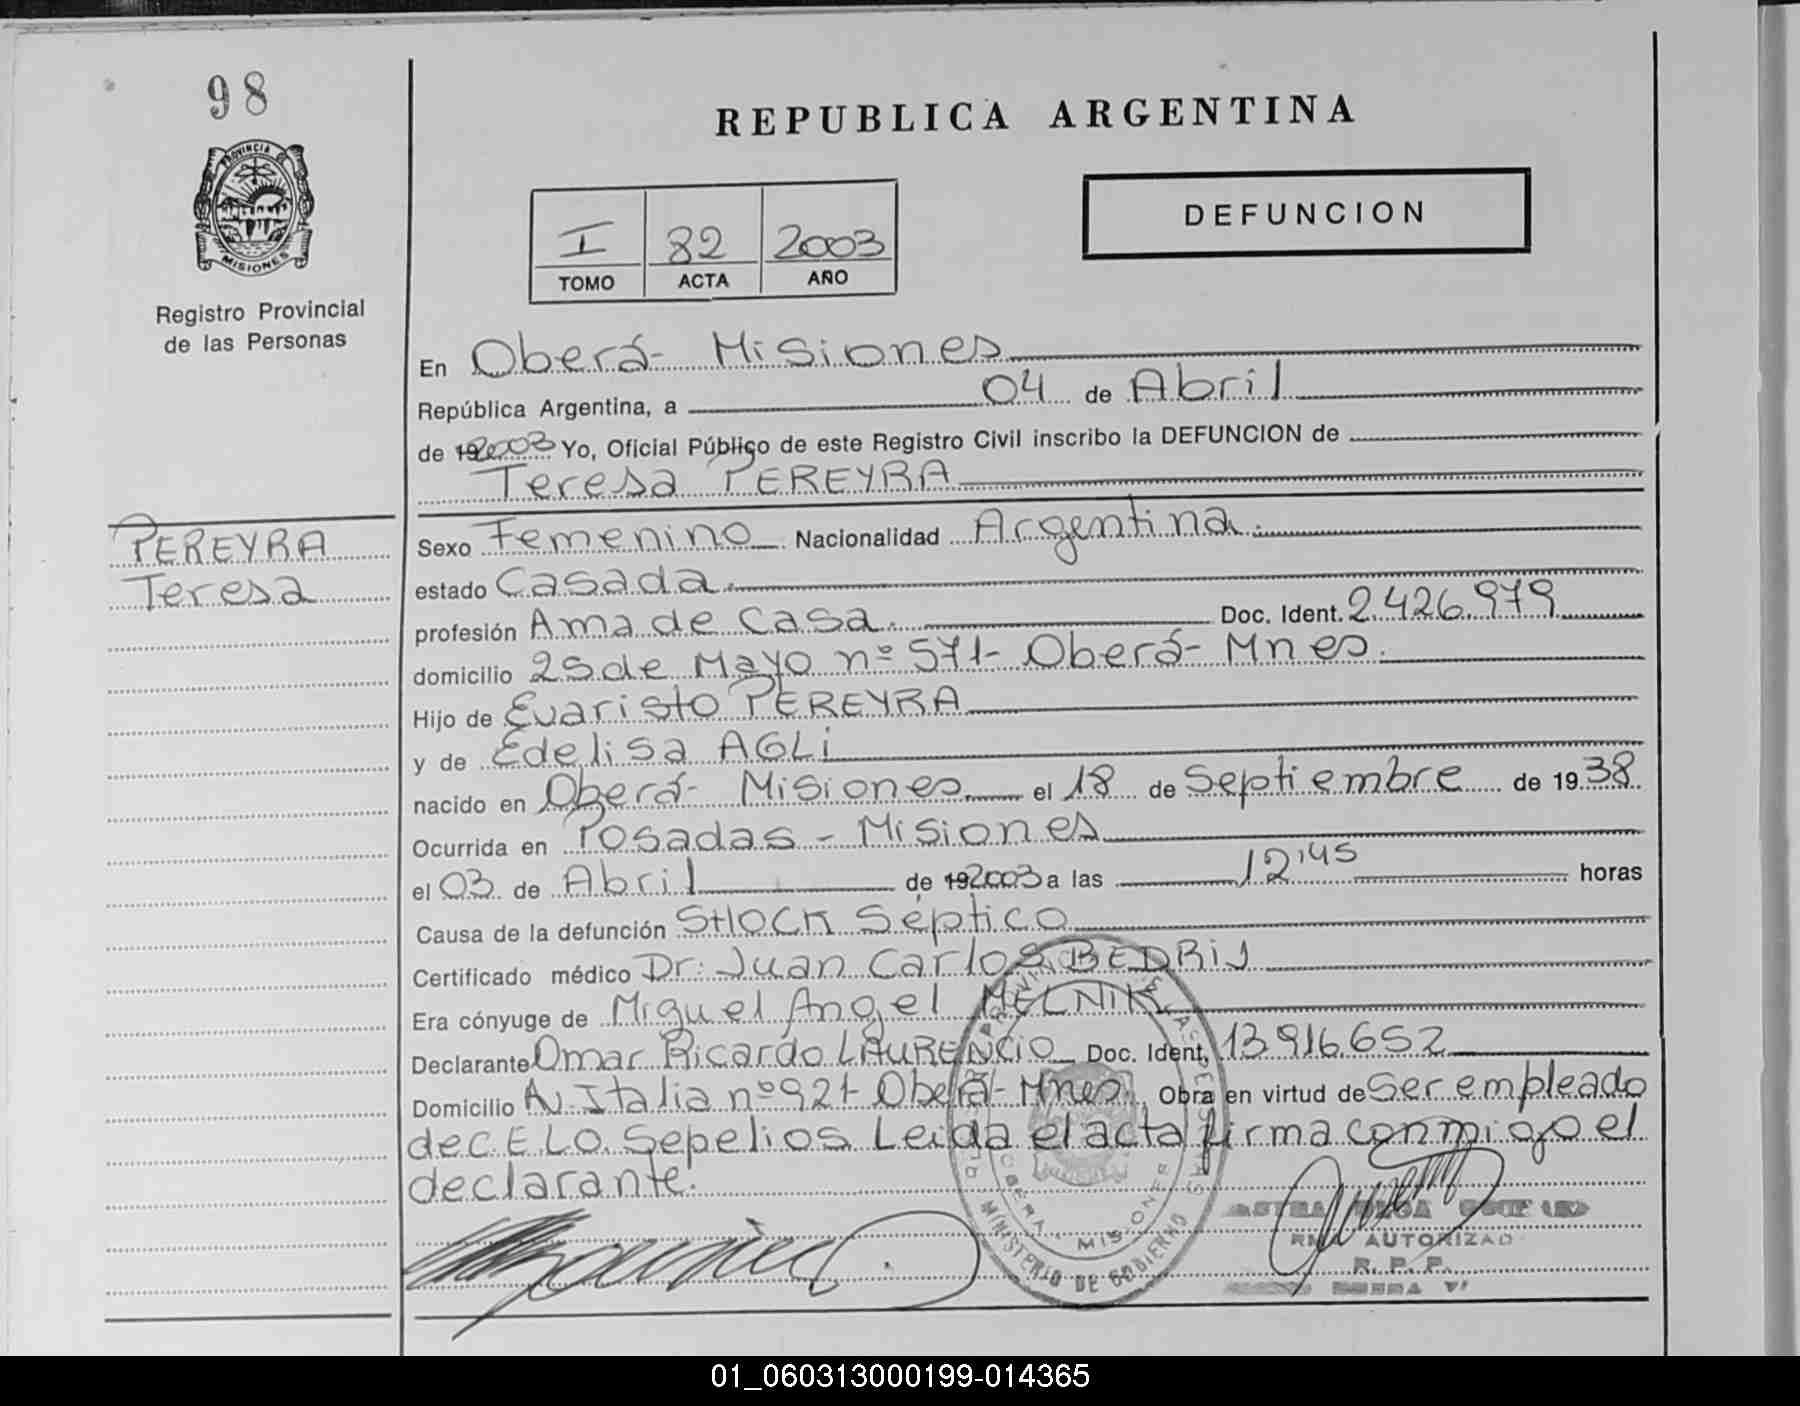 98
PROVINCIA DE
MISIONES
Registro Provincial
de las Personas
PEREYRA
Teresa
REPUBLICA ARGENTINA
DEFUNCION
I 82 2003
TOMO ACTA AÑO
En Oberá- Misiones
República Argentina, a 04 de Abril
de 192003 Yo, Oficial Público de este Registro Civil inscribo la DEFUNCION de
Teresa PEREYRA
Sexo Femenino Nacionalidad Argentina.
estado Casada.
profesión Ama de Casa. Doc. Ident. 2.426.979
domicilio 25 de Mayo nº 571- Oberá- Mnes.
Hijo de Evaristo PEREYRA
y de Edelisa AGLI
nacido en Oberá- Misiones. el 18 de Septiembre de 1938
Ocurrida en Posadas - Misiones
el 03 de Abril de 192003 a las 12'45 horas
Causa de la defunción SHOCK Séptico
Certificado médico Dr: Juan Carlos BEDRIJ
Era cónyuge de Miguel Angel MELNIK
Declarante Omar Ricardo LAURENCIO Doc. Ident. 13.916.652
Domicilio Av. Italia nº 921- Oberá- Mnes. Obra en virtud de Ser empleado
de C.E.L.O. Sepelios. Leida el acta firma conmigo el
declarante.
OBERA - MISIONES
MINISTERIO DE GOBIERNO
AUTORIZAD
R. P. P.
01_060313000199-014365